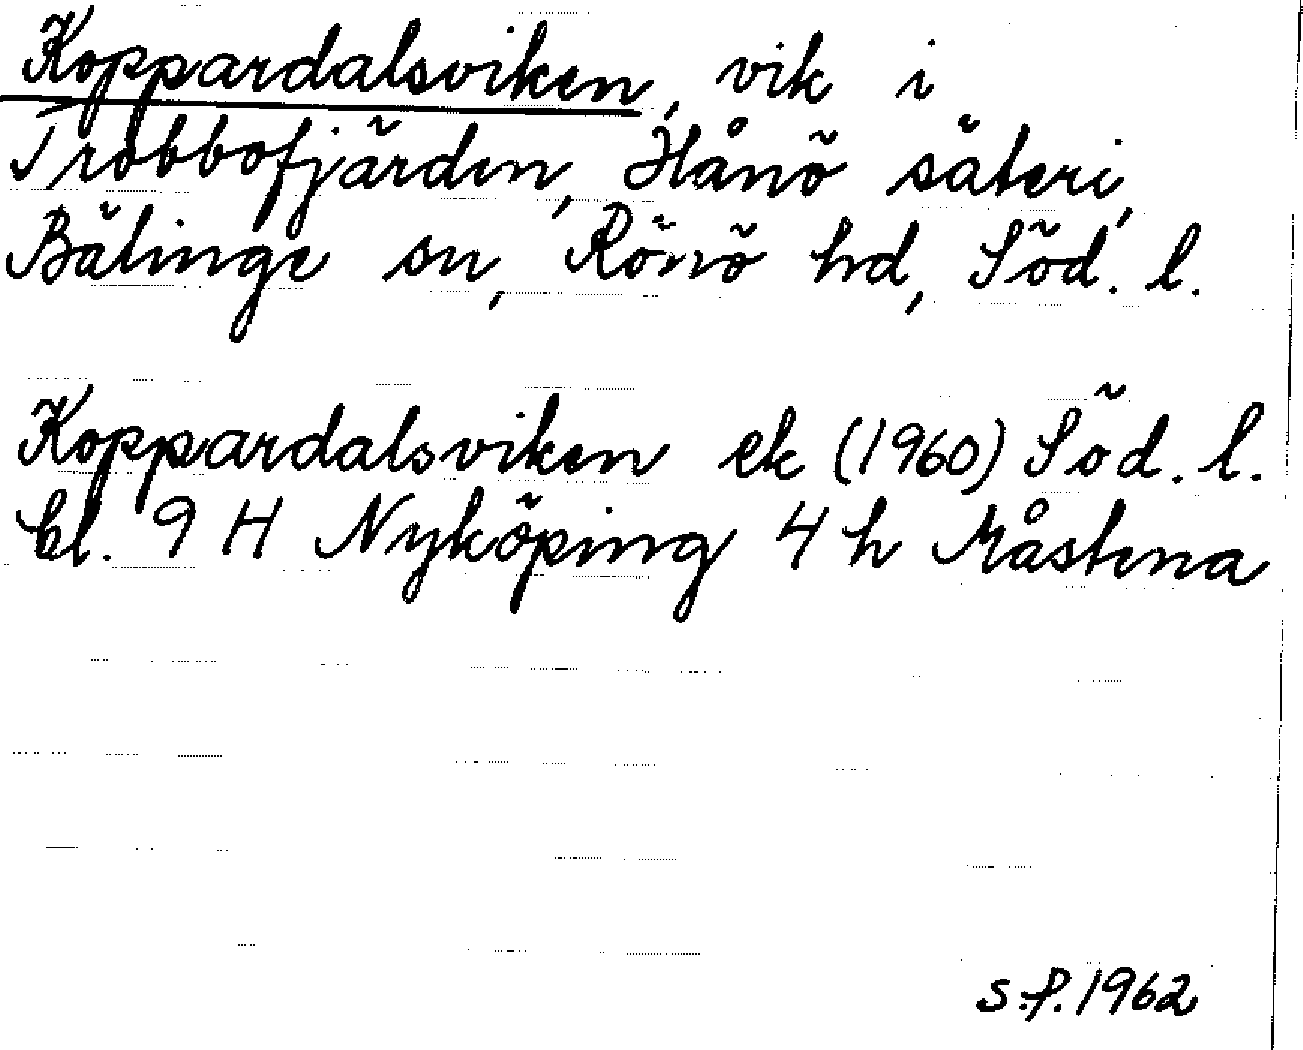 Koppardalsviken, vik i
Trobbofjärden, Hånö säteri,
Bälinge sn, Rönö hd, Söd. l.
Koppardalsviken ek (1960) Söd. l.
bl. 9 H Nyköping 4 h Måstena
S.f. 1962